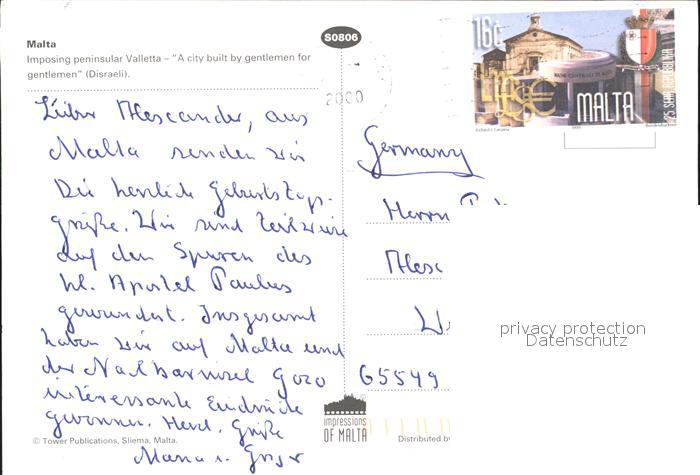 Malta
Imposing peninsular Valletta – "A city built by gentlemen for
gentlemen" (Disraeli).
S0806
2000
16c
MALTA
25 SENA REPUBBLIKA
Lieber Alexander, aus
Malta senden wir
Dir herzliche Geburtstags-
grüße. Wir sind teilweise
auf den Spuren des
hl. Apostel Paulus
gewandert. Insgesamt
haben wir auf Malta und
der Nachbarinsel Gozo
interessante Eindrücke
gewonnen. Herzl. Grüße
Maria u.
Germany
Herrn
65549
privacy protection
Datenschutz
impressions
OF MALTA
© Tower Publications, Sliema, Malta.
Distributed by